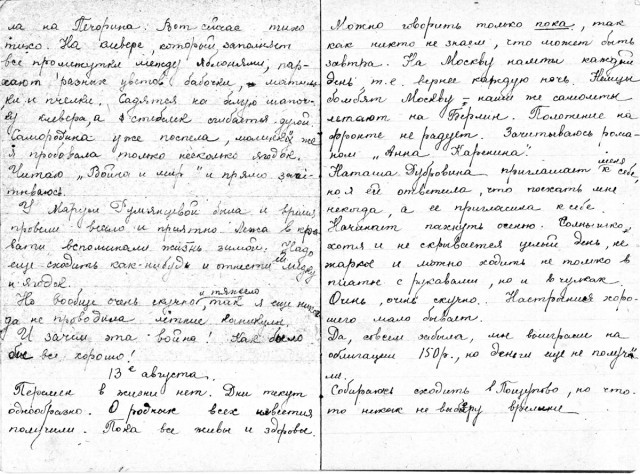 ла на Печорина. Вот сейчас тихо
тихо. На клевере, который заполняет
все промежутки между яблонями, пор-
хают разных цветов бабочки, мотыль-
ки и пчелки. Садятся на белую шапоч-
ку клевера, а стебелек сгибается дугой.
Смородина уже поспела, малинки же
я пробовала только несколько ягодок.
Читаю „Война и мир" и прямо зачи-
тываюсь.
У Маруси Румянцевой была и время
провели весело и приятно. Лежа в кро-
вати вспоминали жизнь зимой. Надо
еще сходить как-нибудь и отнести ей
и ягодок.
Но вообще очень скучно, тяжело, так я еще нико
да не проводила летние каникулы.
И зачем эта война! Как было
бы все хорошо!
13е августа.
Перемен в жизни нет. Дни текут
однообразно. О родных всех известия
получили. Пока все живы и здоровы.
Можно говорить только пока, так
как никто не знает, что может быть
завтра. На Москву налеты каждый
день, т.е. вернее каждую ночь. Немцы
бомбят Москву – наши же самолеты
летают на Берлин. Положение на
фронте не радует. Зачитываюсь рома-
ном „Анна Каренина".
Наташа Дубровина приглашает меня к себе
но я ей ответила, что поехать мне
некогда, а ее пригласила к себе.
Начинает пахнуть осенью. Солнышко,
хотя и не скрывается целый день, не
жаркое и можно ходить не только в
платье с рукавами, но и в чулках.
Очень, очень скучно. Настроения хоро-
шего мало бывает.
Да, совсем забыла, мы выиграли на
облигации 150 р., но деньги еще не получи
ли.
Собираюсь сходить в но что-
то никак не выберу времени